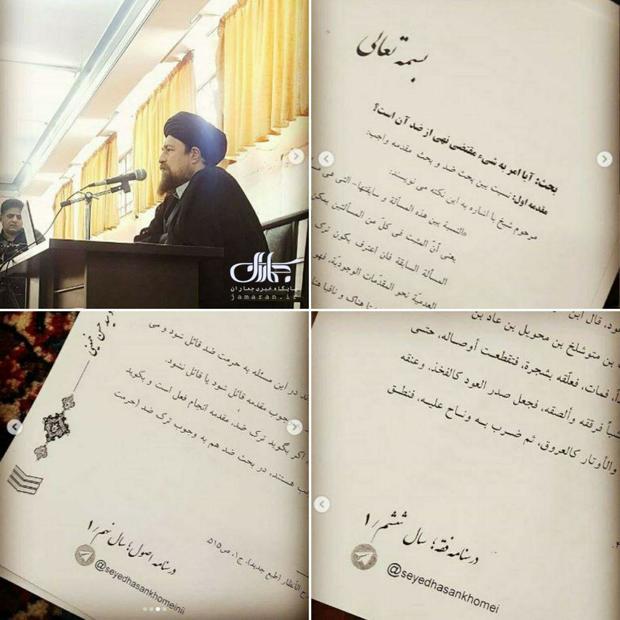 جماران
پایگاه خبری جماران
jamaran.ir
بسمه تعالی
بحث: آیا امر به شیء مقتضی نهی از ضد آن است؟
مقدمه اول: نسبت بین بحث ضد و بحث مقدمه واجب:
مرحوم شیخ با اشاره به این نکته می نویسد:
«النسبة بین هذه المسألة و سابقتها- التی هی
یعنی أنّ المثبت فی کلّ من المسألتین یمکن
المسألة السابقة فان اعترف بکون ترک
العدمیّة نحو المقدّمات الوجودیة، فهو
هناک و نافیا هنا
سید حسن خمینی
در این مسئله به حرمت ضد قائل شود و می
وجوب مقدمه قائل شود یا قائل نشود.
اگر بگوید ترک ضد، مقدمه انجام فعل است و بگوید
هستند، در بحث ضد هم به وجوب ترک ضد (حرمت
الأنظار (طبع جدید)، ج۱، ص۵۱۵.
درسنامه اصول؛ سال نهم/۱
@seyedhasankhomeinii
قال ابن
بن متوشلخ بن محویل بن عاد بن
فمات، فعلّقه بشجرة، فتقطعت أوصاله، حتی
فرققه وألصقه، فجعل صدر العود کالفخذ، وعنقه
والأوتار کالعروق، ثم ضرب به وناح علیه، فنطق
درسنامه فقه؛ سال ششم/۱
@seyedhasankhomei